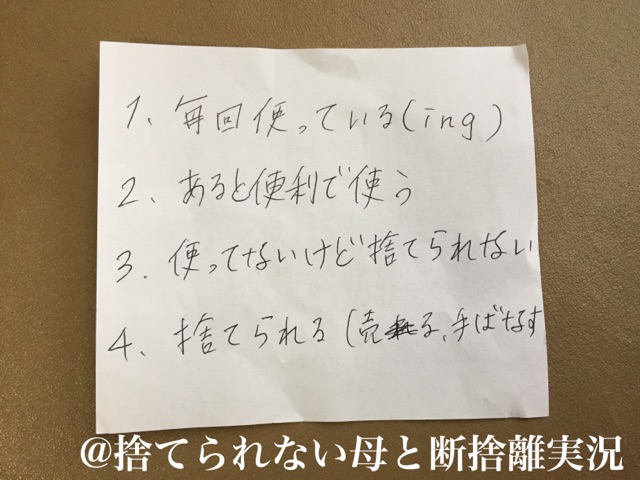 1、毎回使っている(ing)
2、あると便利で使う
3、使ってないけど捨てられない
4、捨てられる(売る、手ばなす
@捨てられない母と断捨離実況